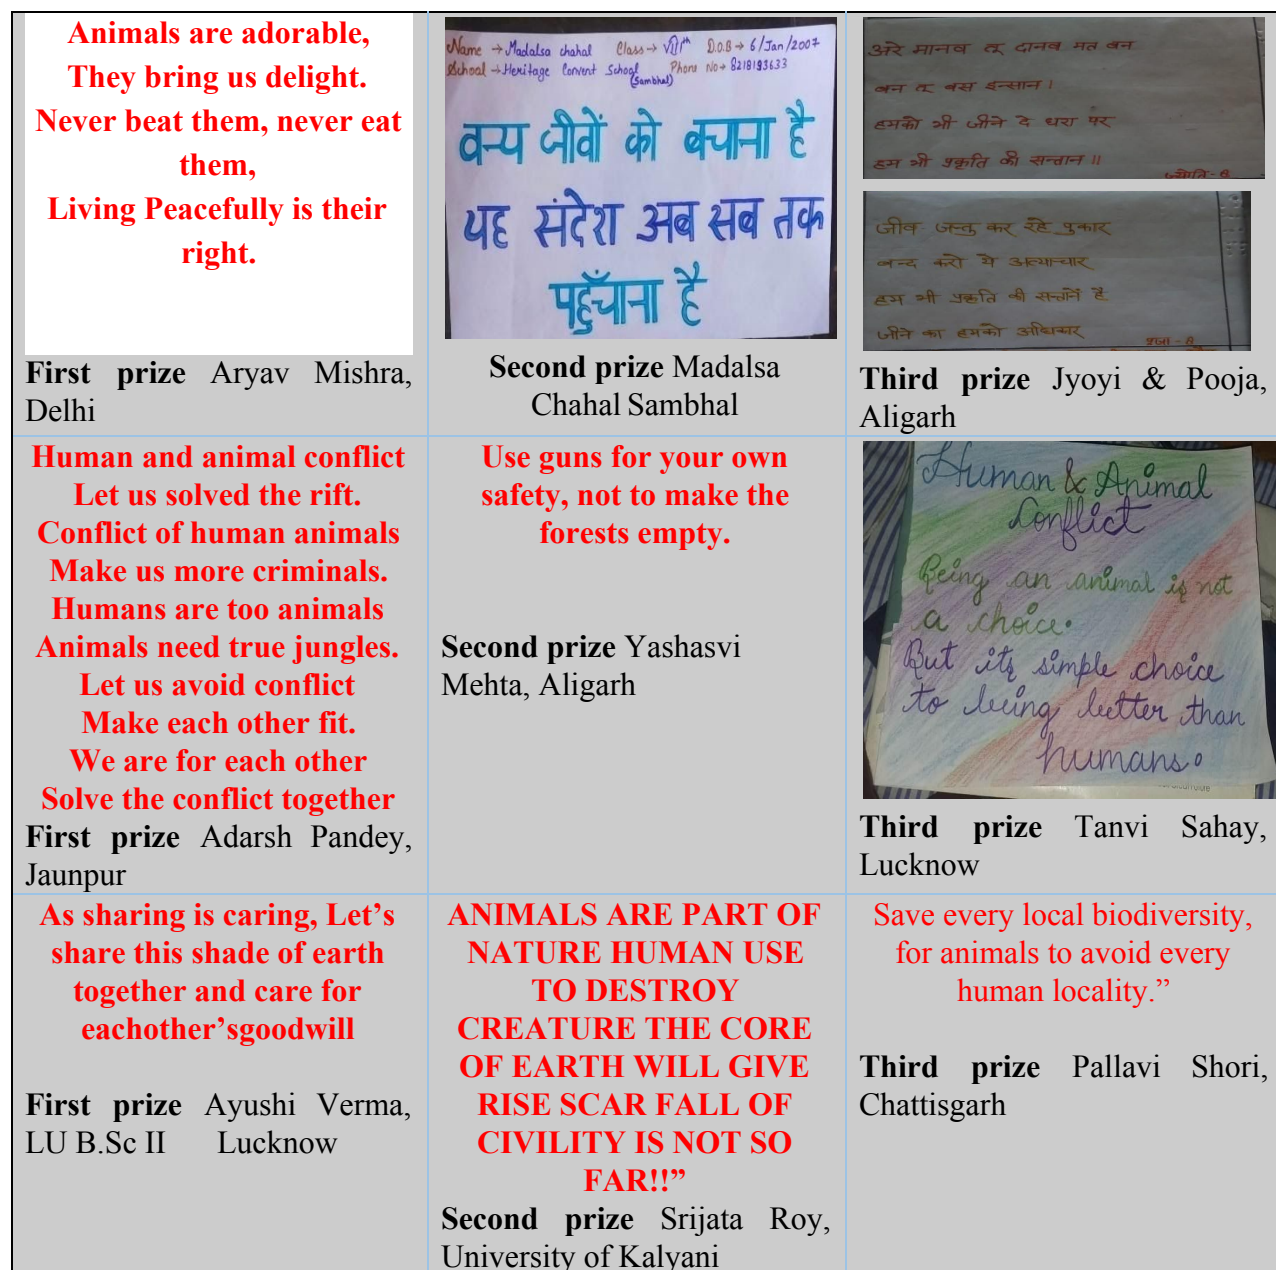 Animals are adorable,
They bring us delight.
Never beat them, never eat
them,
Living Peacefully is their
right.
First prize Aryav Mishra,
Delhi
Name → Madalsa chahal Class → VIIIth D.O.B → 6/Jan/2007
School → Heritage Convent School Phone No → 8218193633
(Sambhal)
वन्य जीवों को बचाना है
यह संदेश अब सब तक
पहुँचाना है
Second prize Madalsa
Chahal Sambhal
अरे मानव तू दानव मत बन
बन तू बस इन्सान।
हमको भी जीने दे धरा पर
हम भी प्रकृति की सन्तान॥
ज्योति - 8
जीव जन्तु कर रहे पुकार
बन्द करो ये अत्याचार
हम भी प्रकृति की सन्तानें है
जीने का हमको अधिकार
पूजा - 8
Third prize Jyoyi & Pooja,
Aligarh
Human and animal conflict
Let us solved the rift.
Conflict of human animals
Make us more criminals.
Humans are too animals
Animals need true jungles.
Let us avoid conflict
Make each other fit.
We are for each other
Solve the conflict together
First prize Adarsh Pandey,
Jaunpur
Use guns for your own
safety, not to make the
forests empty.
Second prize Yashasvi
Mehta, Aligarh
Human & Animal
Conflict
Being an animal is not
a choice.
But its simple choice
to being better than
humans.
Third prize Tanvi Sahay,
Lucknow
As sharing is caring, Let’s
share this shade of earth
together and care for
eachother’sgoodwill
First prize Ayushi Verma,
LU B.Sc II Lucknow
ANIMALS ARE PART OF
NATURE HUMAN USE
TO DESTROY
CREATURE THE CORE
OF EARTH WILL GIVE
RISE SCAR FALL OF
CIVILITY IS NOT SO
FAR!!”
Second prize Srijata Roy,
University of Kalyani
Save every local biodiversity,
for animals to avoid every
human locality.”
Third prize Pallavi Shori,
Chattisgarh